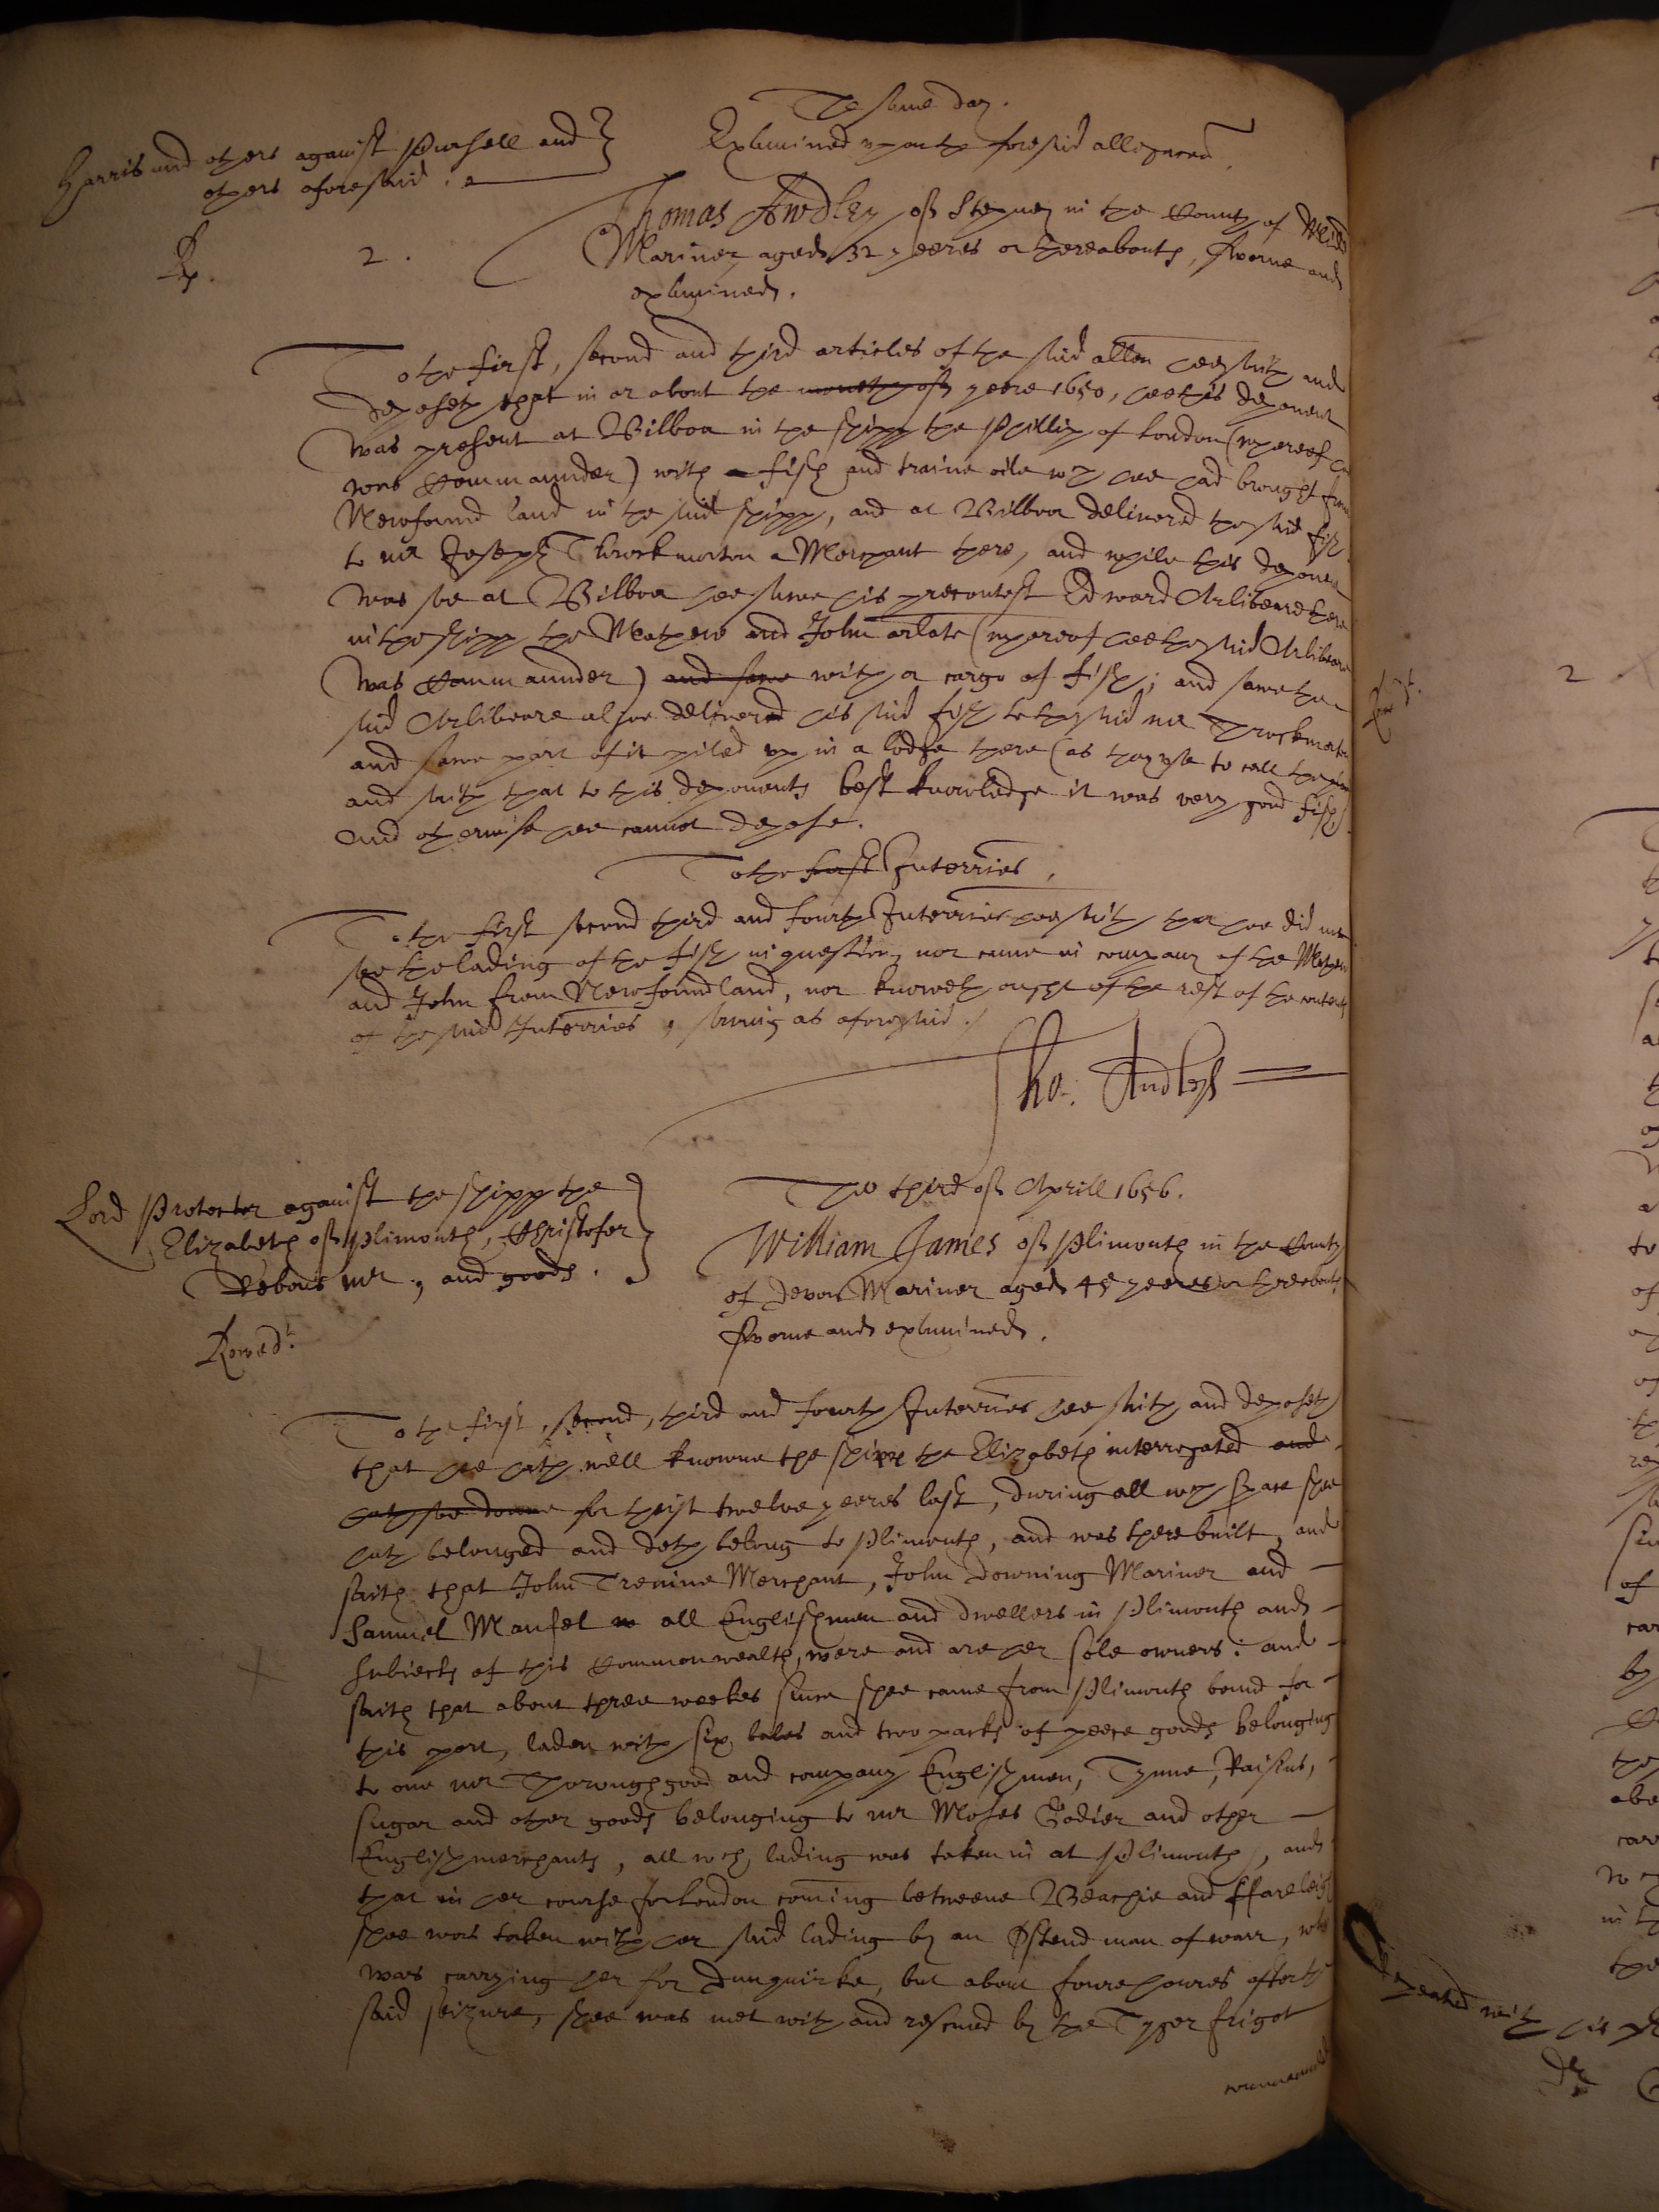 The same day.
Examined upon the foresaid allegacon.
Harris and others against Pushell and
others aforesaid.
Rp. 2.
Thomas Awdley of Stepney in the County of Midd
Mariner aged 32 yeeres or thereabouts, sworne and
examined.
To the first, second and third articles of the said allon hee saith and
deposeth that in or about the moneth of yeere 1650, hee this deponent
was present at Bilboa in the shipp the Phillip of London (whereof he
was Commaunder) with fish and traine oile wch hee had brought from
Newfound land in the said shipp, and at Bilboa delivered the said fish
to mr Joseph Throckmorton a Merchant there, and while this deponent
was soe at Bilboa hee sawe his precontest Edward Arlibeare there
in the shipp the Mathew and John arlate (whereof hee the said Arlibeare
was Commaunder) and sawe with a cargo of fish; and sawe the
said Arlibeare alsoe deliver his said fish to the said mr Throckmorton
and sawe part of it piled up in a lodge there (as they use to call them)
and saith that to this deponents best knowledge it was very good fish
And otherwise hee cannot depose.
To the first Interries.
To the first second third and fourth Interries hee saith that hee did not
see the lading of the fish in question, nor came in company of the Mathew
and John from Newfoundland, nor knoweth ought of the rest of the contents
of the said Interries, saving as aforesaid.
Tho: Audley
Lord Protector against the shipp the
Elizabeth of Plimouth, Christofer
mr, and goods.
The third of Aprill 1656.
William James of Plimouth in the County
of Devon Mariner aged 45 yeeres or thereabouts
sworne and examined.
To the first, second, third and fourth Interries hee saith and deposeth
that hee hath well knowne the shipp the Elizabeth interrogated and
hath soe donne for theise twelve yeeres last, during all wch space shee
hath belonged and doth belong to Plimouth, and was there built, and
saith that John Trenine Merchant, John Downing Mariner and
Samuel Mansel all Englishmen and dwellers in Plimouth and
subiects of this Commonwealth, were and are her sole owners: and
saith that about three weekes since shee came from Plimouth bound for
this port, laden with six bales and two packs of peece goods belonging
to one mr Thoroughgood and company Englishmen, Tynne, Raisins,
sugar and other goods belonging to mr Moses Godier and other
English merchants, all wch lading was taken in at Plimouth, and
that in her course for London coming betweene Beachie and ffareleigh
shee was taken with her said lading by an Ostend man of warr, wch
was carrying her for Dunquirke, but about foure houres after the
said seizure, shee was met with and rescued by the Tyger frigot